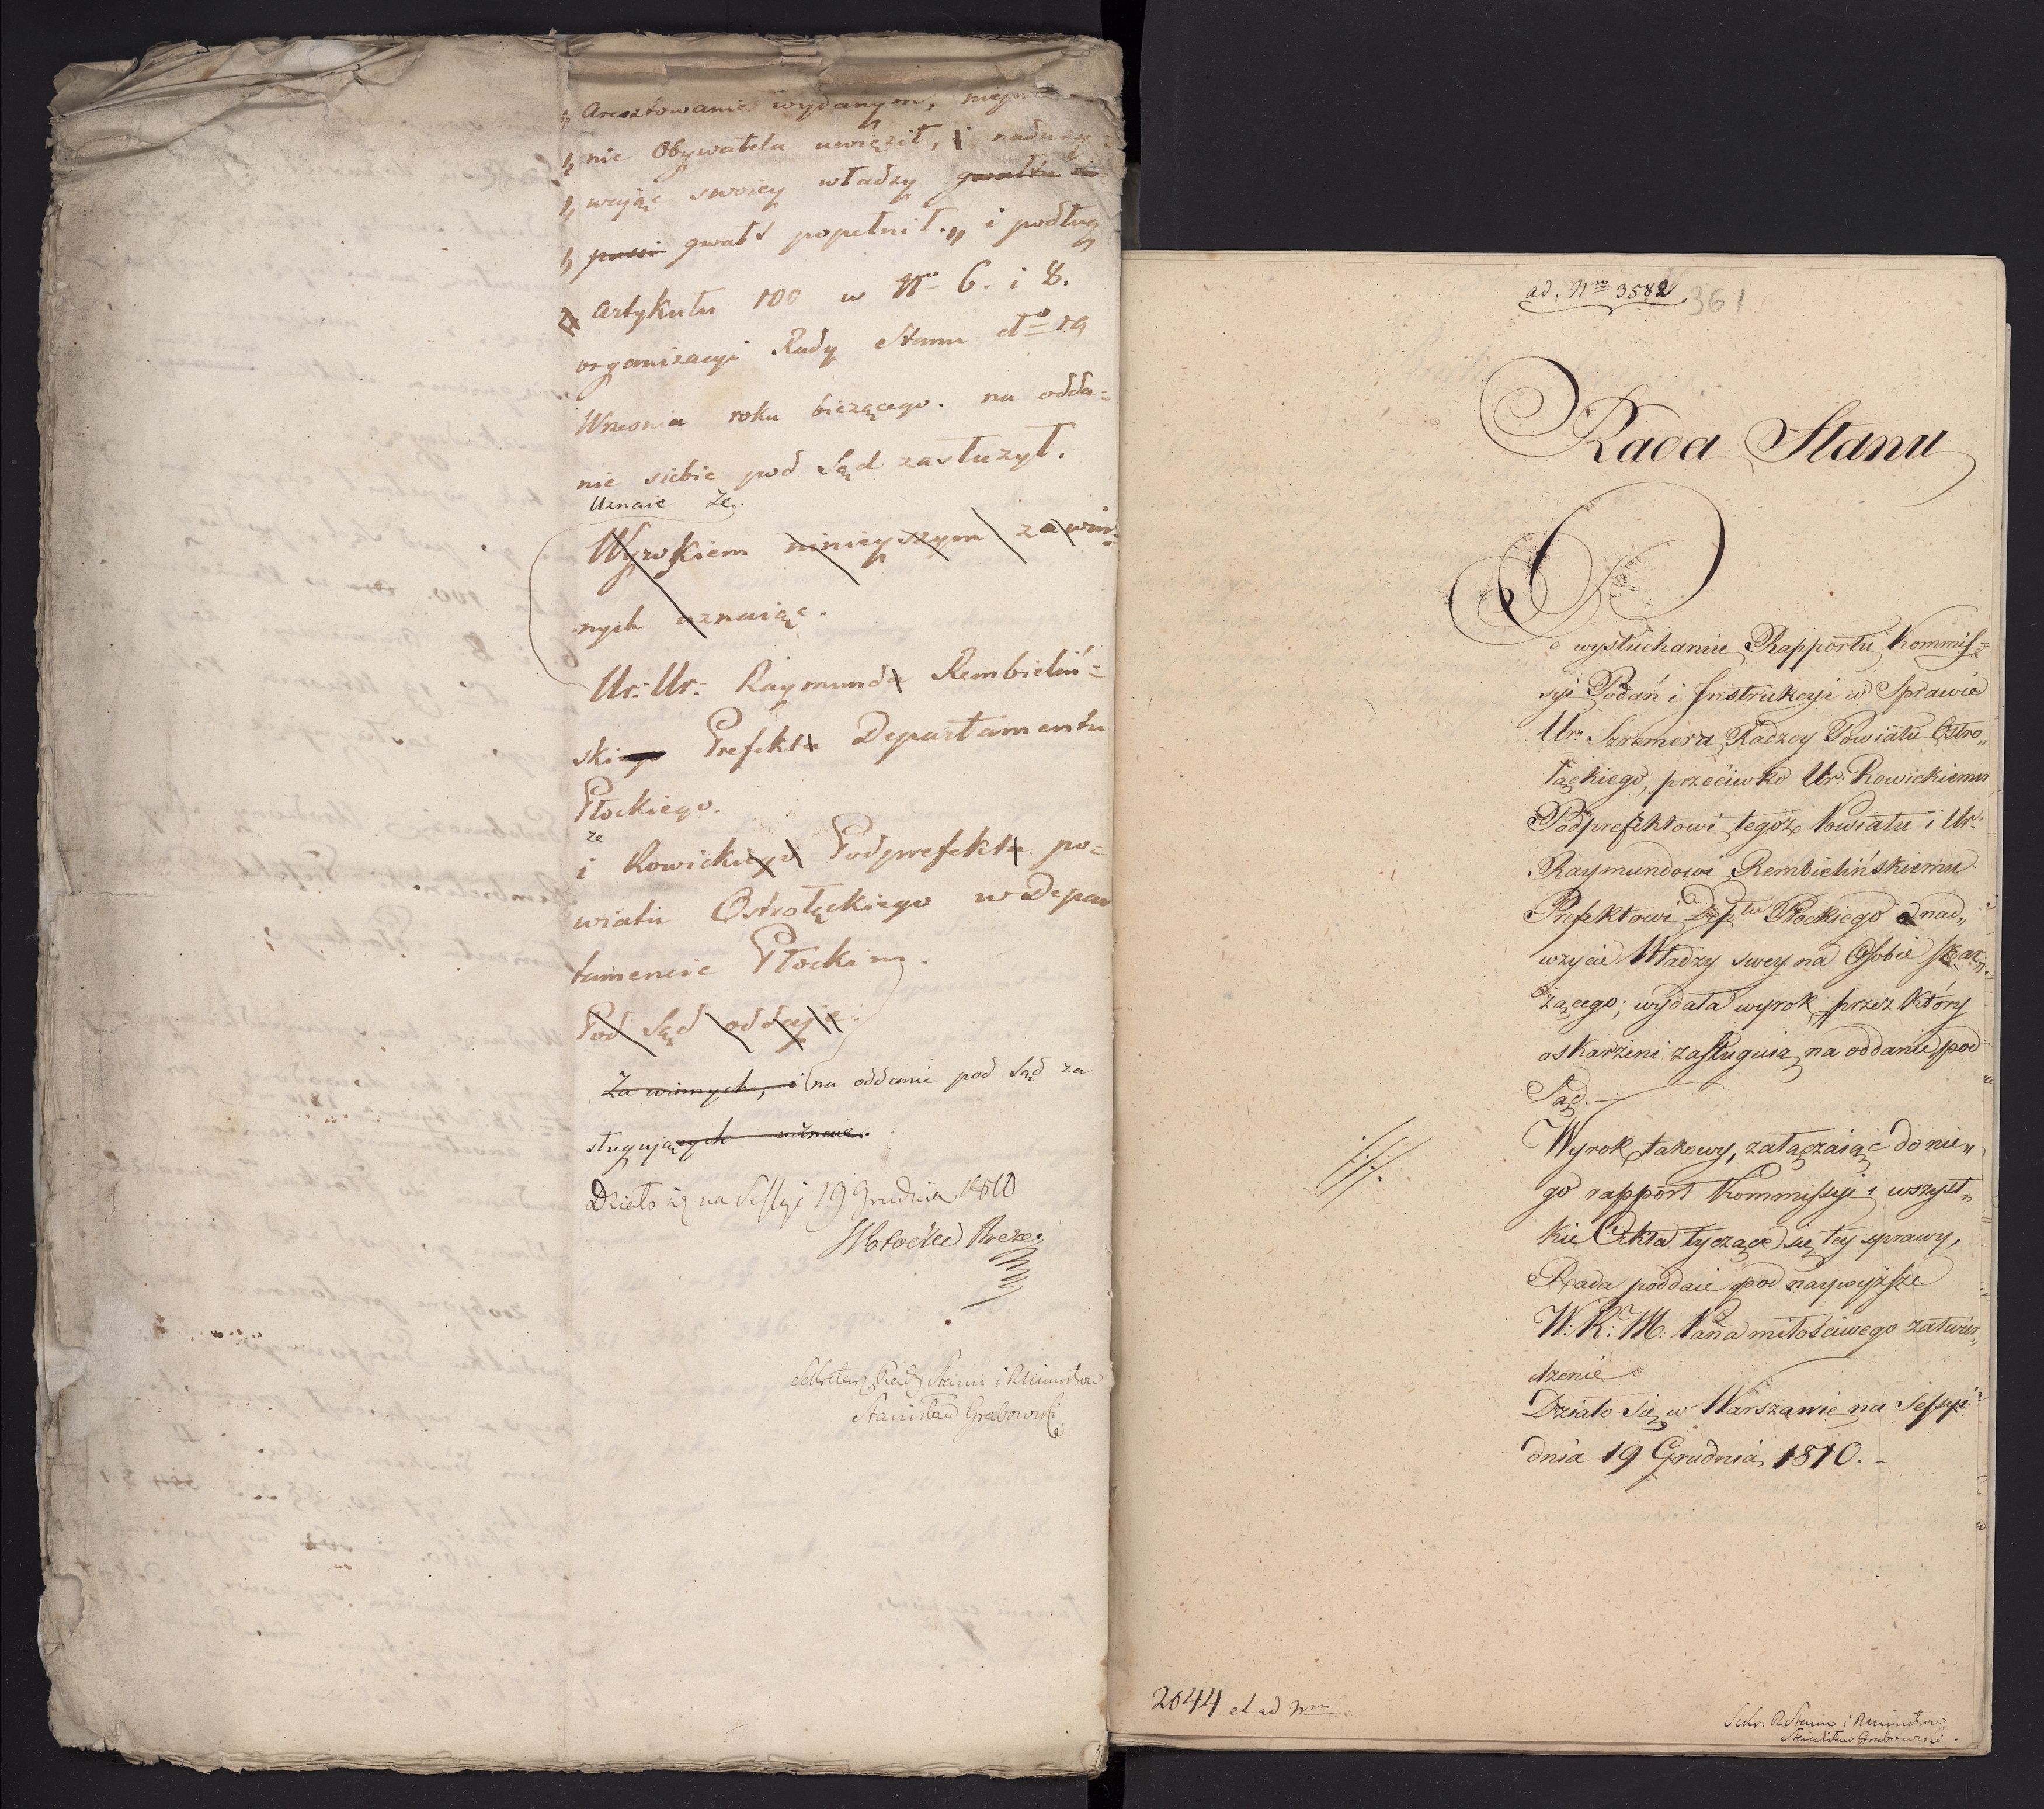 „ Aresztowanie wydanym,
„ nie Obywatela uwięził, i naduży-
„ wając swoiey władzy gwałtu
„ gwałt popełnił.„ i podług
Artykułu 100 w No 6. i 8.
organizacyi Rady Stanu do 19
Wrzesnia roku bieżącego. na odda=
nie siebie pod Sąd zasłużył.
Uznaie Ze
Wyrokiem ninieyszym za win=
nych uznaiąc.
Ur: Ur: Raymunda Rembieliń=
skiego Prefekta Departamentu
Płockiego.
że
i Rowickiego Podprefekta po=
wiatu Ostrołęckiego w Depar
tamencie Płockim.
Pod Sąd oddaje.
Za winnych, i na oddanie pod Sąd za
sługujących uznaie.
Działo się na Sessyi 19 Grudnia 1810
Sekretarz Rady Stanu i Ministrów
Stanisław Grabowski
ad. Nrm 3582
361
Rada Stanu
Po wysłuchaniu Rapportu Kommis=
syi Podań i Instrukcyi w Sprawie
Ur: Szremera Radzcy Powiatu Ostro„
łęckiego, przeciwko Ur: Rowickiemu
Podprefektowi tegoż Powiatu i Ur:
Raymundowi Rembielińskiemu
Prefektowi Deptu Płockiego o nad„
użycie Władzy swey na Osobie skar„
żącego; wydała wyrok przez który
oskarżeni zasługuią na oddanie pod
Sąd.—
Wyrok takowy, załączaiąc do nie„
go rapport Kommissyi i wszyst„
kie Akta tyczące się tey sprawy,
Rada poddaie pod naywyższe
W: K: M: Pana miłościwego zatwier„
dzenie
Działo się w Warszawie na Sessyi
dnia 19 Grudnia 1810.—
2044 et ad Nrm
Sekr: R Stanu i Ministrów
Stanisław Grabowski